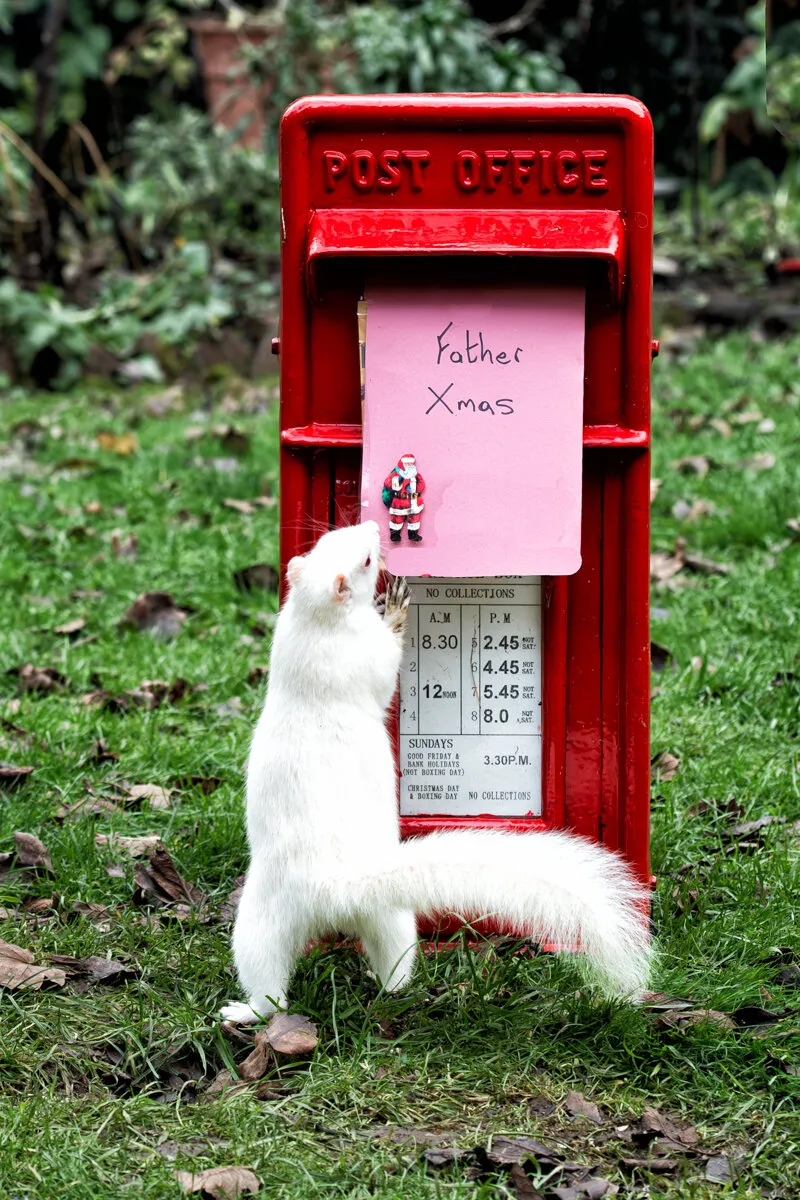 POST OFFICE
Father
Xmas
NO COLLECTIONS
A.M P.M
1 8.30 5 2.45 NOT SAT.
2 6 4.45 NOT SAT.
3 12 NOON 7 5.45 NOT SAT.
4 8 8.0 NOT SAT.
SUNDAYS
GOOD FRIDAY &
BANK HOLIDAYS
(NOT BOXING DAY) 3.30P.M.
CHRISTMAS DAY
& BOXING DAY NO COLLECTIONS